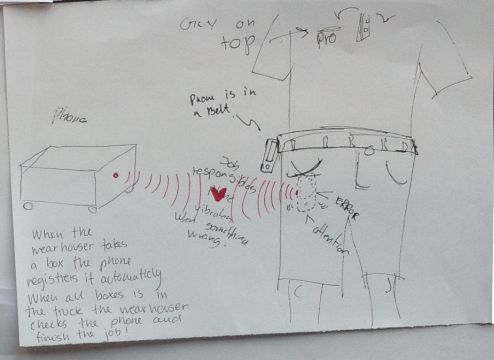 Grey on
top
pro
Phone is in
a Belt.
Phone
Job
vibration
when something
wrong.
ERROR
attention
When the
wearhouser takes
a box the phone
registrers it automaticly
When all boxes is in
the truck the wearhouser
checks the phone and
finish the job!